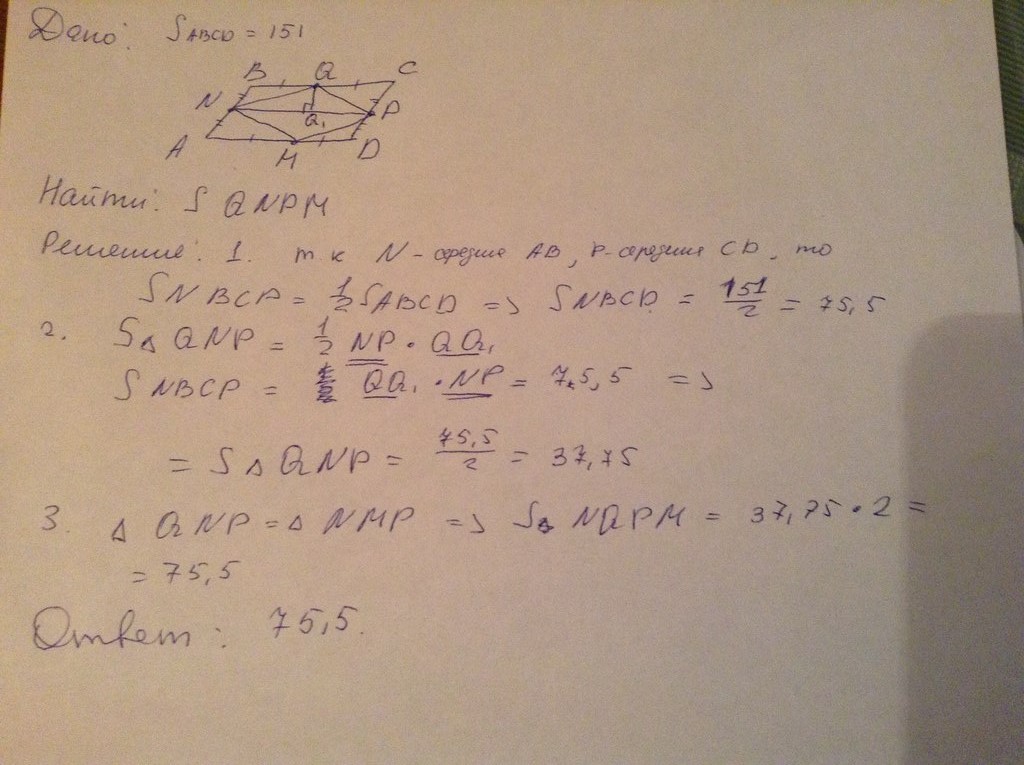 Дано: SABCD = 151
B Q C
N Q₁ P
A M D
Найти: S QNPM
Решение: 1. т.к N - середина AB, P - середина CD, то
SNBCP = 1/2 SABCD => SNBCD = 151/2 = 75,5
2. S△ QNP = 1/2 NP · QQ₁
SNBCP = QQ₁ · NP = 75,5 =>
= S△QNP = 75,5/2 = 37,75
3. △ QNP = △ NMP => S NQPM = 37,75 · 2 =
= 75,5
Ответ: 75,5.